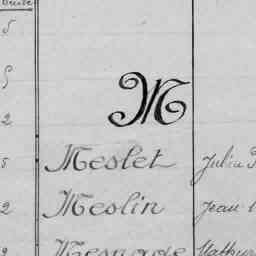 5
5
2
M
5 Meslet Julien
2 Meslin Jean
Mesnage Mathur